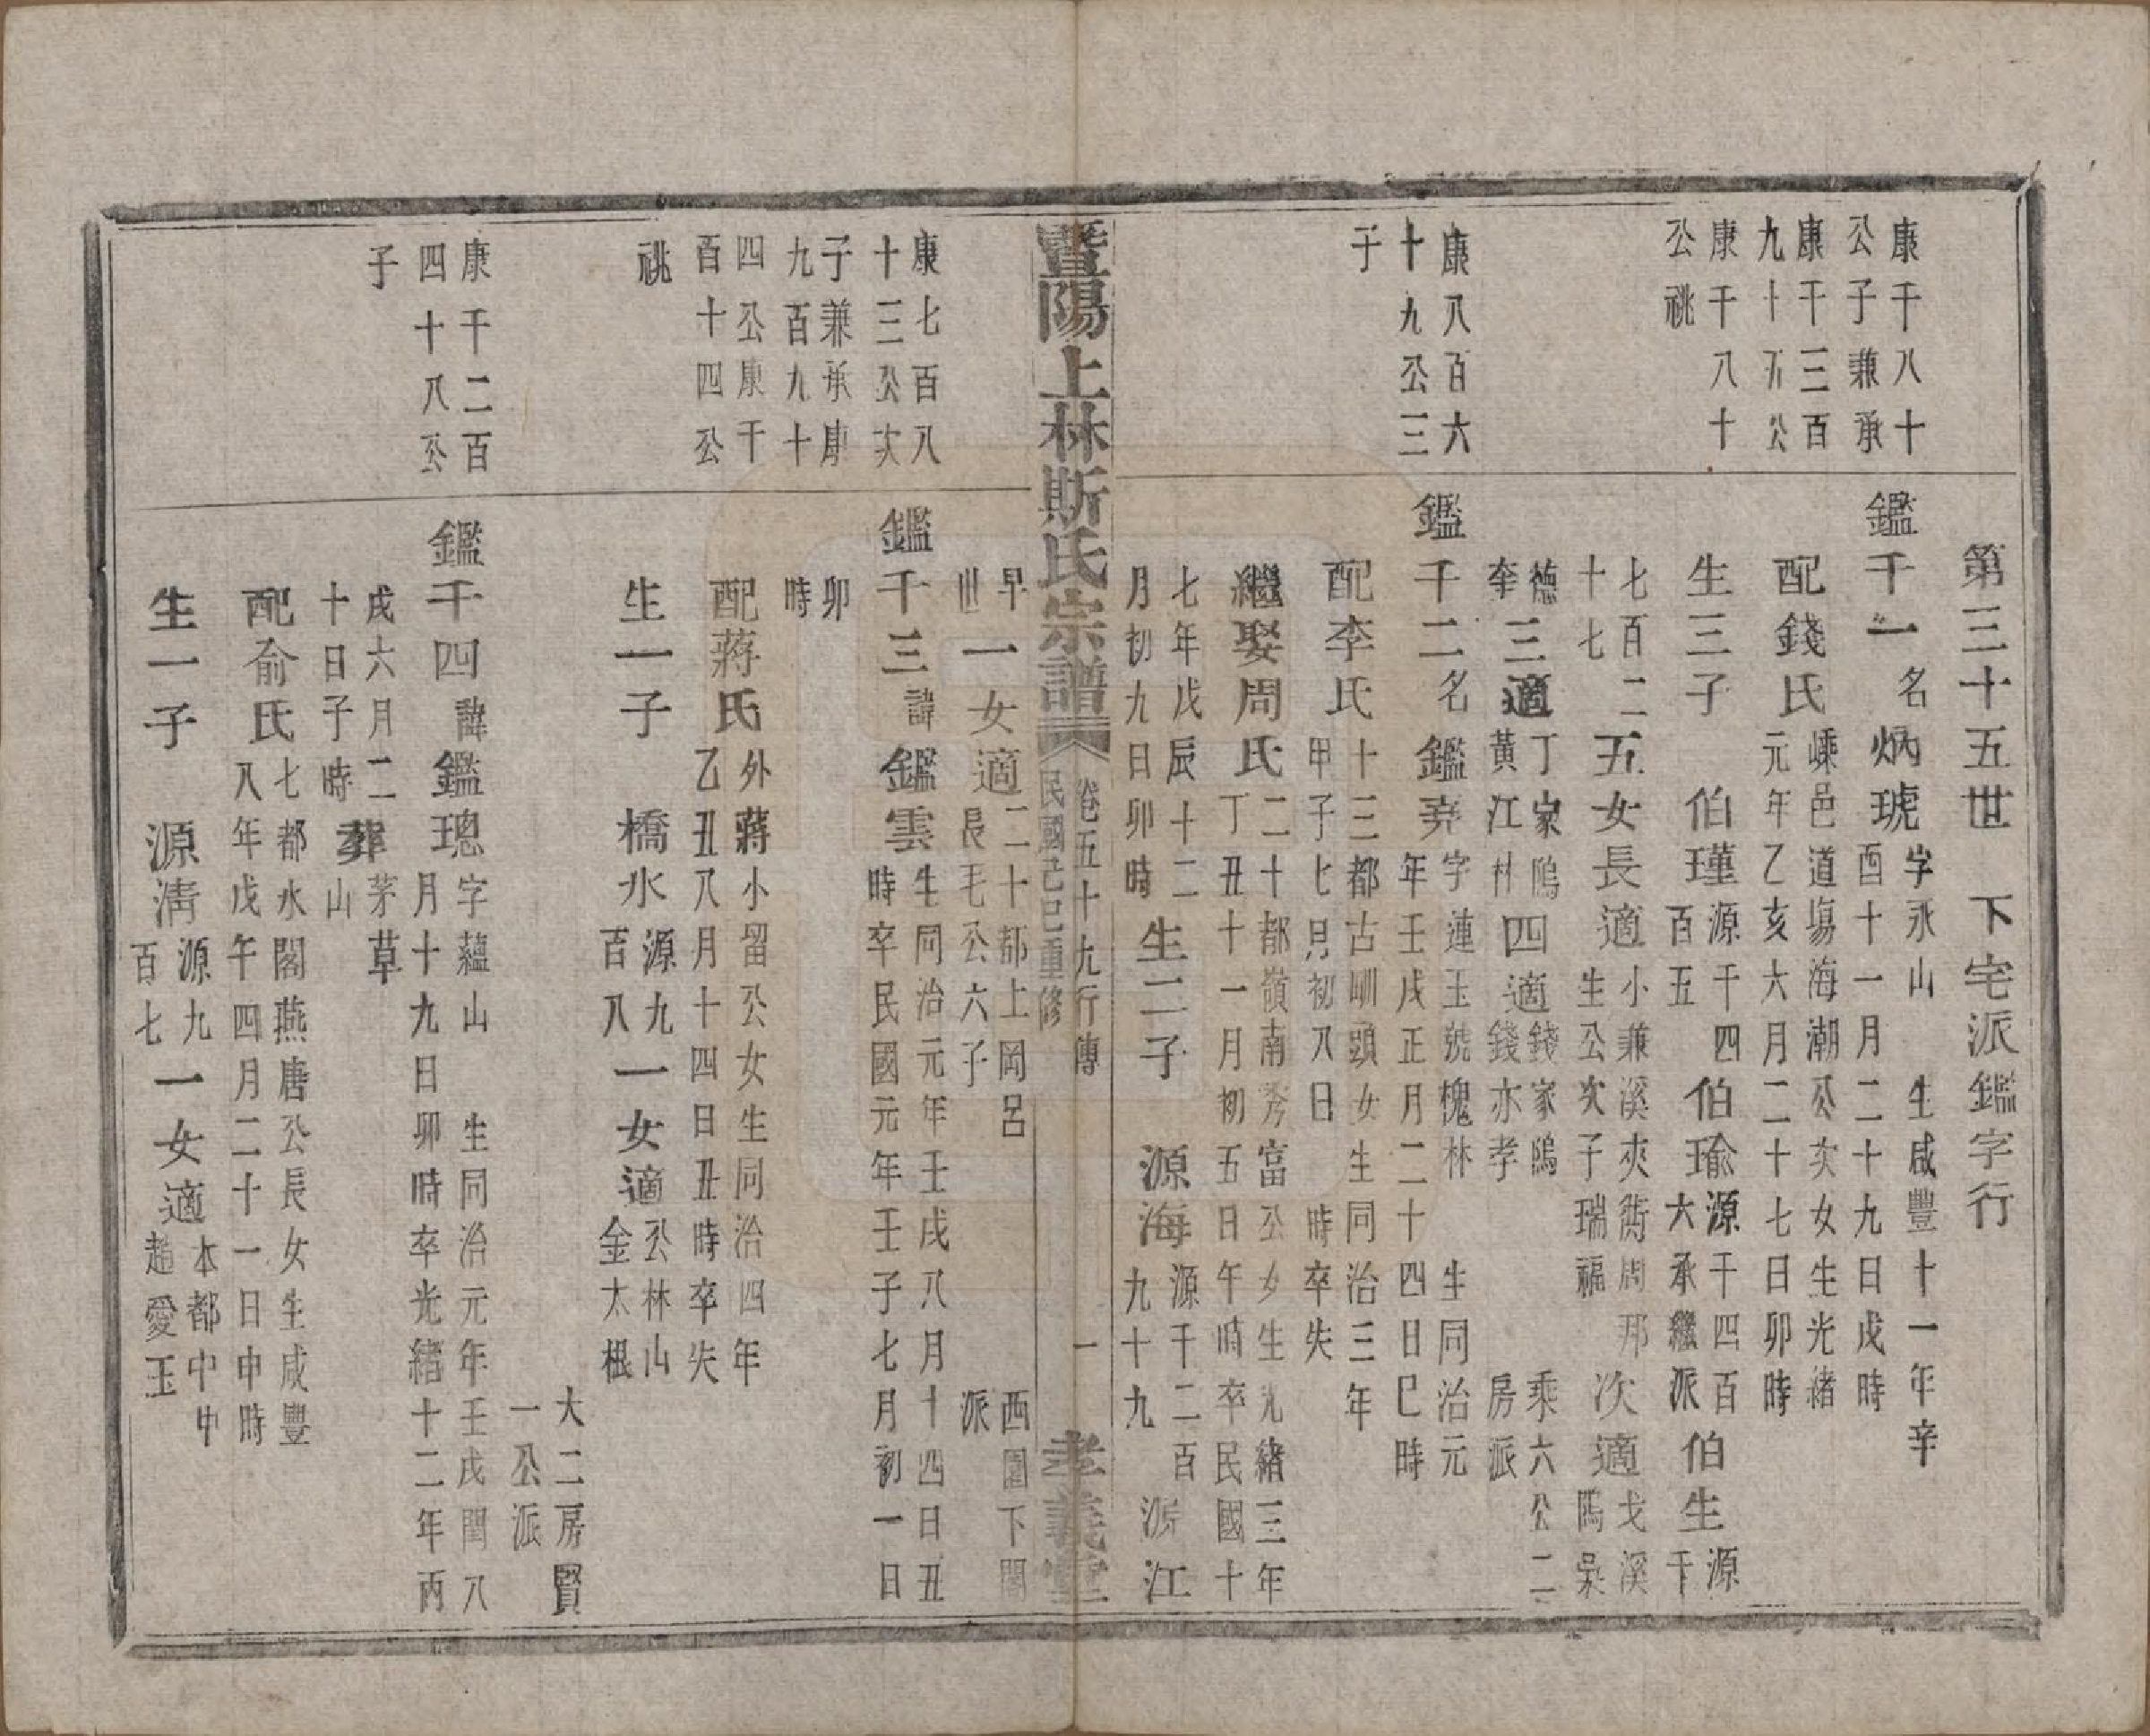 第三十五世 下宅派鑑字行
康千八十
公子兼承
康千三百
九十五公
康千八十
公祧
鑑千一名炳琥字永山 生咸豐十一年辛
酉十一月二十九日戌時
配錢氏嵊邑道塲海潮公次女生光緒
元年乙亥六月二十七日卯時
生三子 伯瑾源千四百五 伯瑜源千四百六承繼派 伯生源千
七百二十七 五女長適小兼溪夾衖周那生公次子瑞福 次適戈溪隖吳
德奎 三適丁家隖黃江林 四適錢家隖錢亦孝
乘六公二房派
康八百六
十九公三
子
鑑千二名鑑堯字連玉號槐林 生同治元
年壬戌正月二十四日巳時
配李氏十三都古唎頭女生同治三年
甲子七月初八日 時卒失
繼娶周氏二十都嶺南秀富公女生光緒三年
丁丑十一月初五日午時卒民國十
七年戊辰十二
月初九日卯時 生二子 源海源千二百九十九 源江
暨陽上林斯氏宗譜
卷五十九行傳
民國己巳重修
一
孝義堂
早世 一女適二十都上岡呂長毛公六子
西園下閣派
康七百八
十三公次
子兼承康
九百九十
四公康千
百十四公
祧
鑑千三諱鑑雲生同治元年壬戌八月十四日丑
時卒民國元年壬子七月初一日
卯時
配蔣氏外蔣小留公女生同治四年
乙丑八月十四日丑時卒失
生一子 橋水源九百八 一女適公林山金太根
大二房賢
一公派
康千二百
四十八公
子
鑑千四諱鑑璁字蘊山 生同治元年壬戌閏八
月十九日卯時卒光緒十二年丙
戌六月二
十日子時 葬茅草山
配俞氏七都水閣燕唐公長女生咸豐
八年戊午四月二十一日申時
生一子 源清源九百七 一女適本都中中趙愛玉